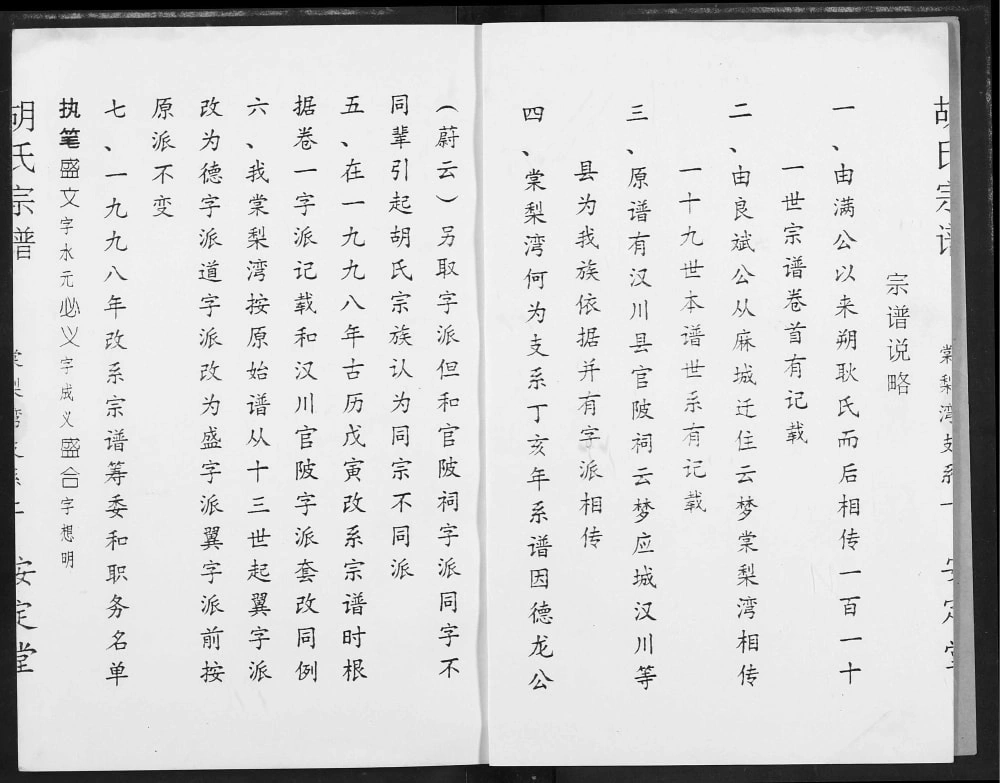 胡氏宗谱 棠梨湾支系一 安定堂
宗谱说略
一、由满公以来朔耿氏而后相传一百一十
一世宗谱卷首有记载
二、由良斌公从麻城迁住云梦棠梨湾相传
一十九世本谱世系有记载
三、原谱有汉川县官陂祠云梦应城汉川等
县为我族依据并有字派相传
四、棠梨湾何为支系丁亥年系谱因德龙公
（蔚云）另取字派但和官陂祠字派同字不
同辈引起胡氏宗族认为同宗不同派
五、在一九九八年古历戊寅改系宗谱时根
据卷一字派记载和汉川官陂字派套改同例
六、我棠梨湾按原始谱从十三世起翼字派
改为德字派道字派改为盛字派翼字派前按
原派不变
七、一九九八年改系宗谱筹委和职务名单
执笔盛文字水元必义字成义盛合字想明
胡氏宗谱 棠梨湾支系二 安定堂